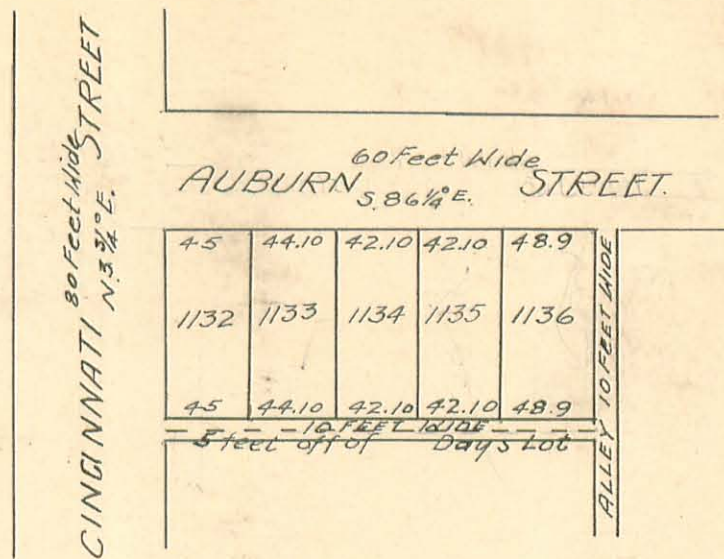 CINCINNATI STREET
80 Feet Wide
N. 3 3/4° E.
60 Feet Wide
AUBURN STREET.
S. 86 1/4° E.
45 44.10 42.10 42.10 48.9
1132 1133 1134 1135 1136
45 44.10 42.10 42.10 48.9
10 FEET WIDE
5 feet off of Days Lot
ALLEY 10 FEET WIDE